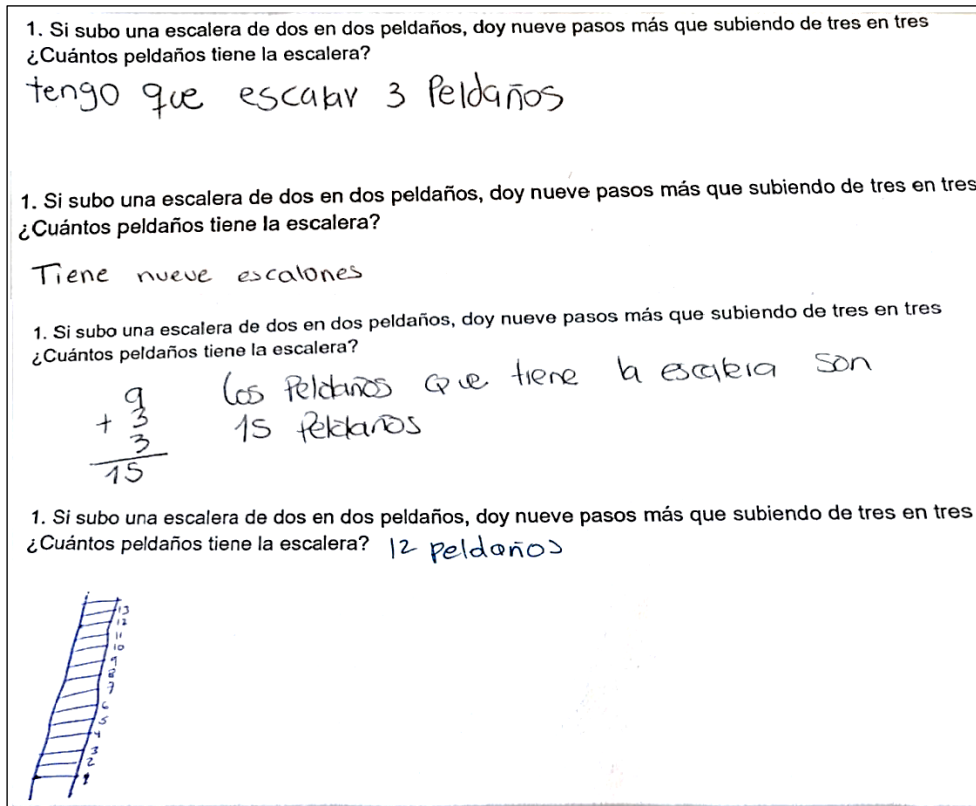 1. Si subo una escalera de dos en dos peldaños, doy nueve pasos más que subiendo de tres en tres
¿Cuántos peldaños tiene la escalera?
tengo que escalar 3 Peldaños
1. Si subo una escalera de dos en dos peldaños, doy nueve pasos más que subiendo de tres en tres
¿Cuántos peldaños tiene la escalera?
Tiene nueve escalones
1. Si subo una escalera de dos en dos peldaños, doy nueve pasos más que subiendo de tres en tres
¿Cuántos peldaños tiene la escalera?
9
+ 3
3
15
los Peldaños que tiene la escalera son
15 Peldaños
1. Si subo una escalera de dos en dos peldaños, doy nueve pasos más que subiendo de tres en tres
¿Cuántos peldaños tiene la escalera? 12 peldaños
13
12
11
10
9
8
7
6
5
4
3
2
1